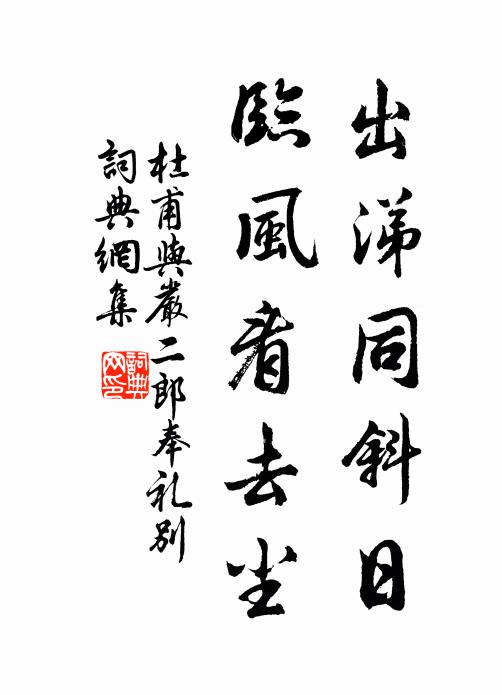 出涕同斜日
臨風看去尘
杜甫與嚴二郎奉礼別
詞典網集
詞典網印